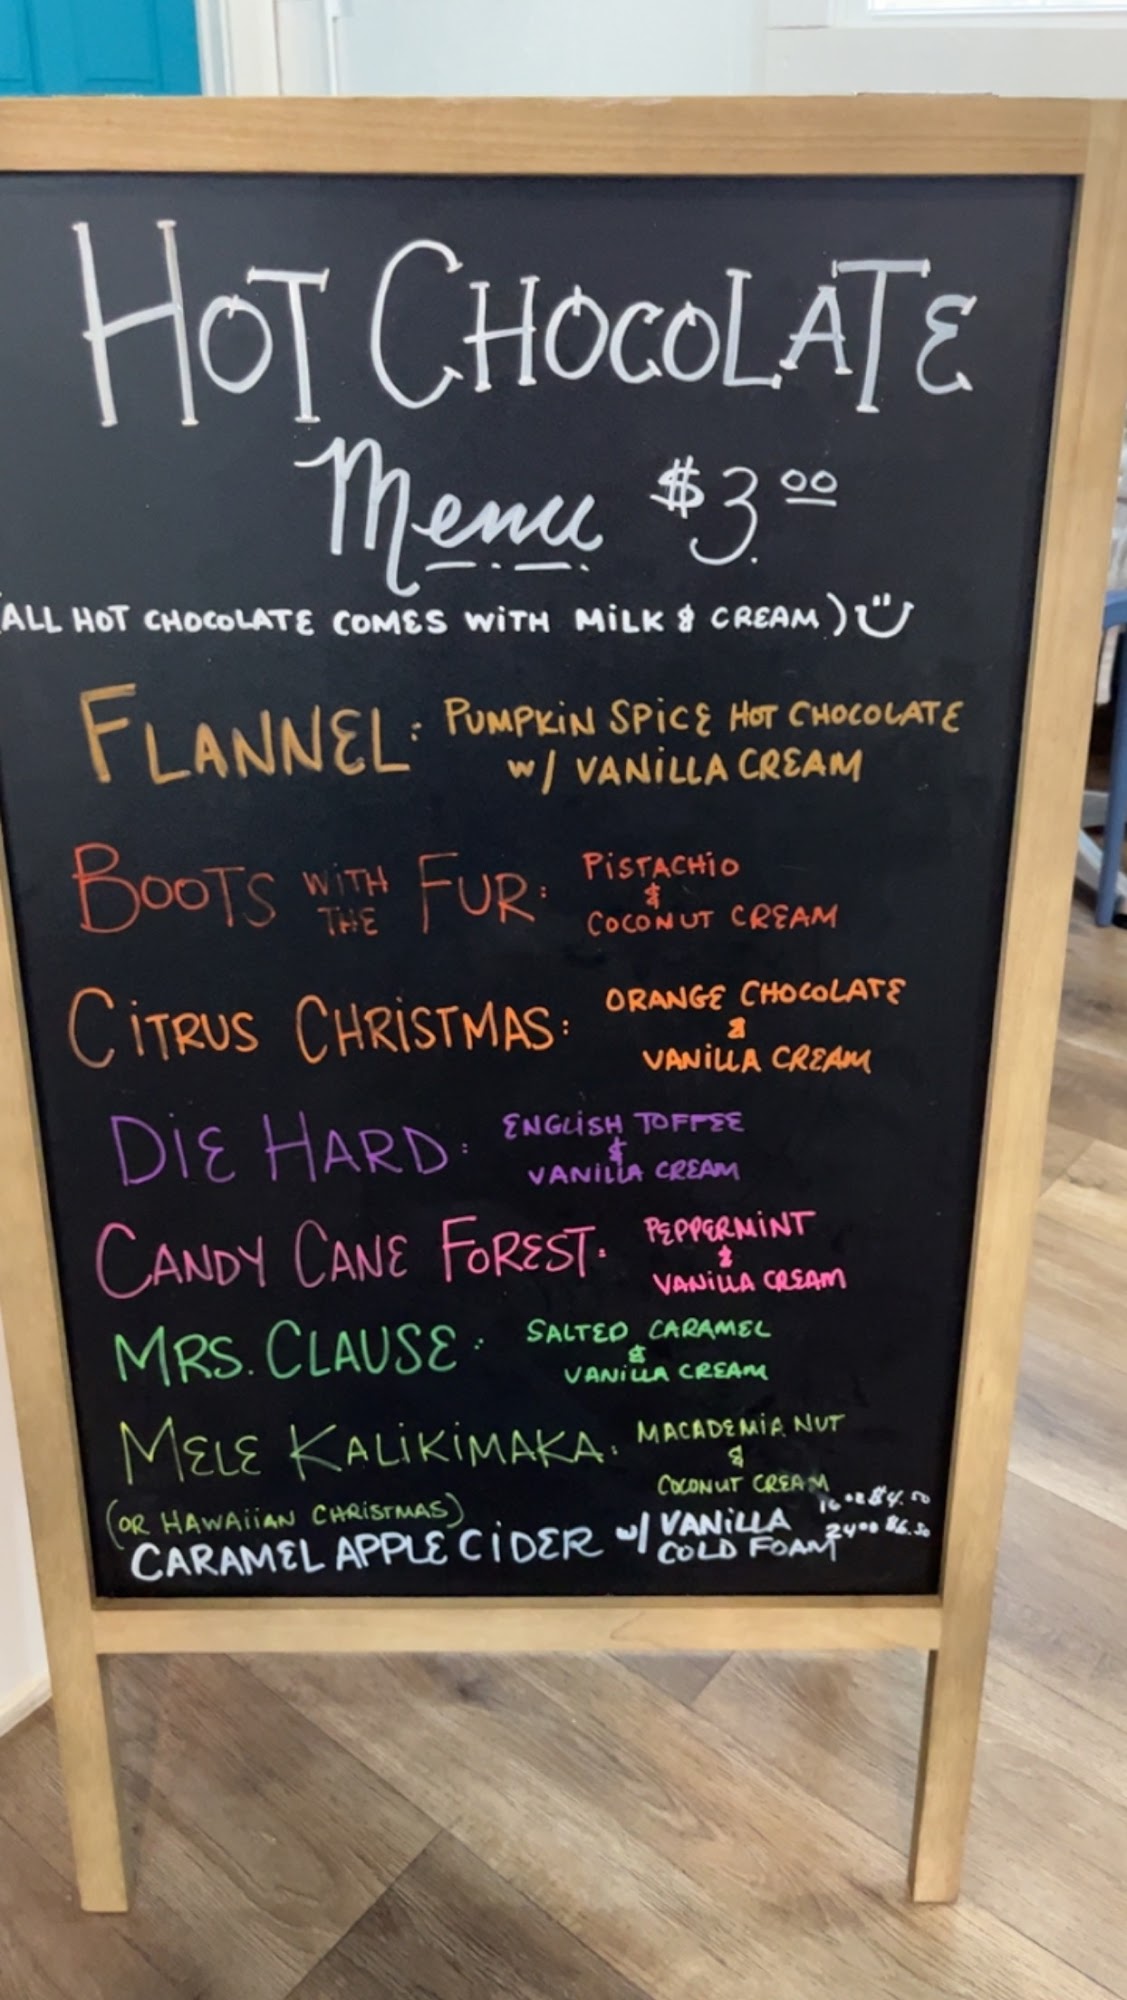 HOT CHOCOLATE
Menu $3.00
(ALL HOT CHOCOLATE COMES WITH MILK & CREAM)
FLANNEL: PUMPKIN SPICE HOT CHOCOLATE
w/ VANILLA CREAM
BOOTS WITH THE FUR: PISTACHIO
&
COCONUT CREAM
CITRUS CHRISTMAS: ORANGE CHOCOLATE
&
VANILLA CREAM
DIE HARD: ENGLISH TOFFEE
&
VANILLA CREAM
CANDY CANE FOREST: PEPPERMINT
&
VANILLA CREAM
MRS. CLAUSE: SALTED CARAMEL
&
VANILLA CREAM
MELE KALIKIMAKA: MACADEMIA NUT
&
COCONUT CREAM
(OR HAWAIIAN CHRISTMAS)
CARAMEL APPLE CIDER w/ VANILLA COLD FOAM
16oz $4.50
24oz $6.50